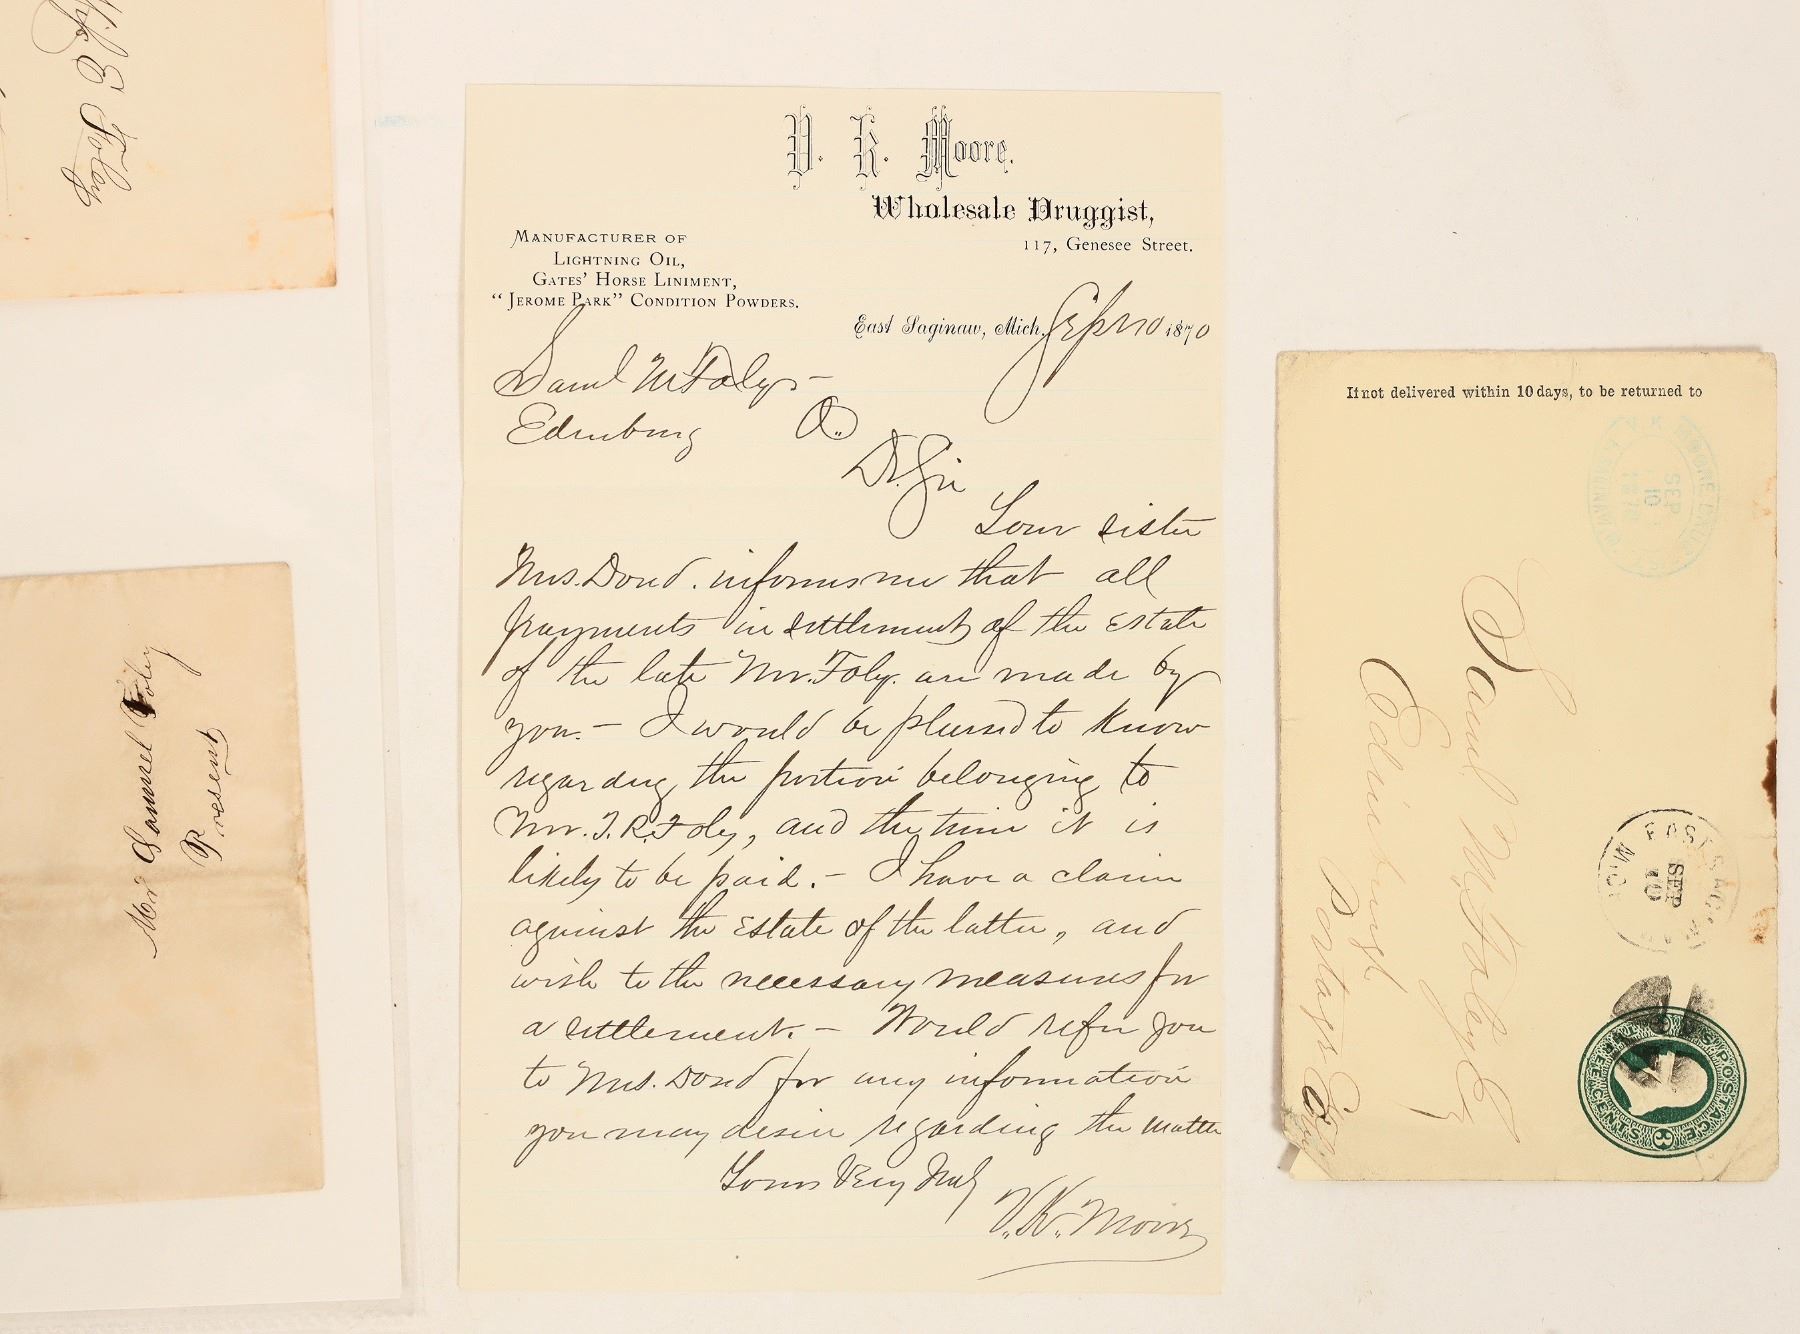 E Foley
Mr Samuel Foley
Present
V. K. Moore.
Wholesale Druggist,
117, Genesee Street.
Manufacturer of
Lightning Oil,
Gates' Horse Liniment,
"Jerome Park" Condition Powders.
East Saginaw, Mich. Sept 10 1870
Saml M Foley
Edinburg O.
Dr. Sir
Your sister
Mrs. Doud. informs me that all
payments in settlement of the Estate
of the late Mr. Foly. are made by
you. - I would be pleased to know
regarding the portion belonging to
Mr. T. R. Foly, and the time it is
likely to be paid. - I have a claim
against the Estate of the latter, and
wish to the necessary measures for
a settlement. - Would refer you
to Mrs. Doud for any information
you may desire regarding the matter
Yours Very Truly
V. K. Moore
If not delivered within 10 days, to be returned to
V K MOORE
SEP
10
1870
Saml M. Foley
Edinburgh
Portage Co
EAST SAGINAW
SEP
10
MICH
U.S. POSTAGE
3